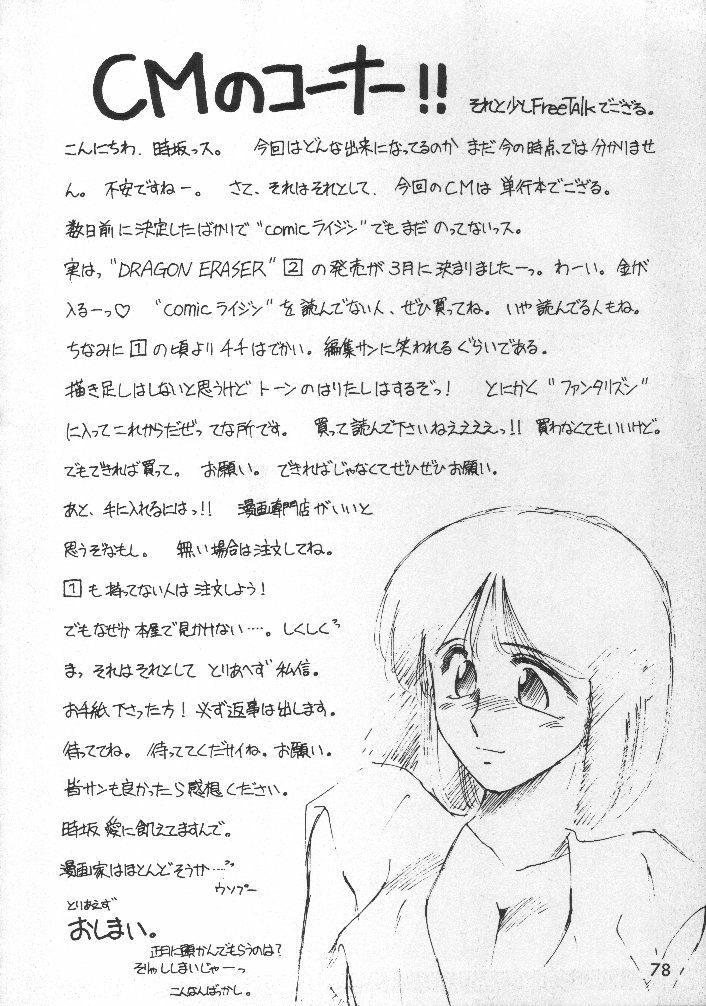 CMのコーナー!!
それと少しFreeTalkでござる。
こんにちわ、時坂っス。 今回はどんな出来になってるのか まだ今の時点では分かりませ
ん。 不安ですねー。 さて、それはそれとして、今回のCMは 単行本でござる。
数日前に決定したばかりで“comicライジン”でもまだ のってないっス。
実はっ“DRAGON ERASER”2 の発売が 3月に決まりましたーっ。わーい。金が
入るーっ♡ “comicライジン”を読んでない人、ぜひ買ってね。いや読んでる人もね。
ちなみに 1 の頃より チチはでかい。編集サンに笑われるぐらいである。
描き足しはしないと思うけど トーンのはりたしはするぞっ! とにかく“ファンタリズン”
に入ってこれからだぜってな所です。 買って読んで下さいねええええっ!! 買わなくてもいいけど。
でもできれば買って。 お願い。 できればじゃなくてぜひぜひお願い。
あと、手に入れるにはっ!! 漫画専門店がいいと
思うぞなもし。 無い場合は注文してね。
1 も持ってない人は注文しよう!
でもなぜか本屋で見かけない……。しくしく
まっ それはそれとして とりあへず私信。
お手紙下さった方! 必ず返事は出します。
待っててね。 待っててくだサイね。お願い。
皆サンも良かったら感想ください。
時坂 愛に飢えてますんで。
漫画家はほとんどそうか…
ウソプー
とりあえず
おしまい。
正月に頭かんでもらうのは?
そりゅししまいじゃーっ
こんなんばっかし。
78